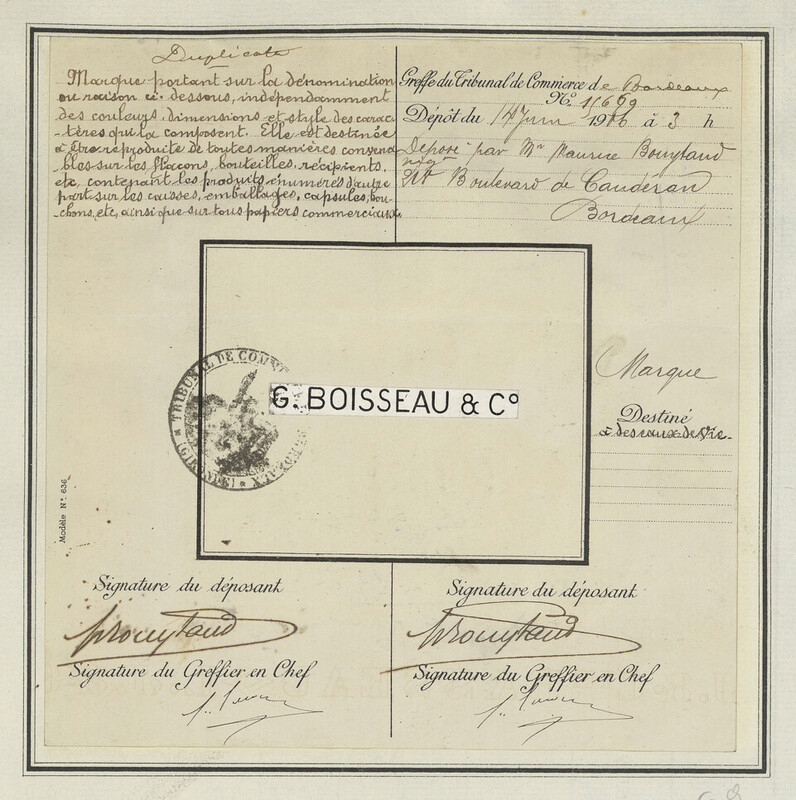 Duplicata
Marque portant sur la dénomination
ou raison ci-dessous, indépendamment
des couleurs, dimensions et style des carac-
tères qui la composent. Elle est destinée
à être reproduite de toutes manières convena-
bles sur les flacons, bouteilles, récipients,
etc, contenant les produits énumérés d'autre
part sur les caisses, emballages, capsules, bou-
chons, etc, ainsi que sur tous papiers commerciaux.
Greffe du Tribunal de Commerce de Bordeaux
No. 11699
Dépôt du 14 Juin 1916 à 3 h
Déposé par Mr Maurice Bouytaud
négt
Boulevard de Caudéran
Bordeaux
TRIBUNAL DE COMM
(GIRONDE)
G. BOISSEAU & Co
Marque
Destiné
à des eaux-de-vie.
Modèle No. 636
Signature du déposant
Signature du déposant
Bouytaud
Bouytaud
Signature du Greffier en Chef
Signature du Greffier en Chef